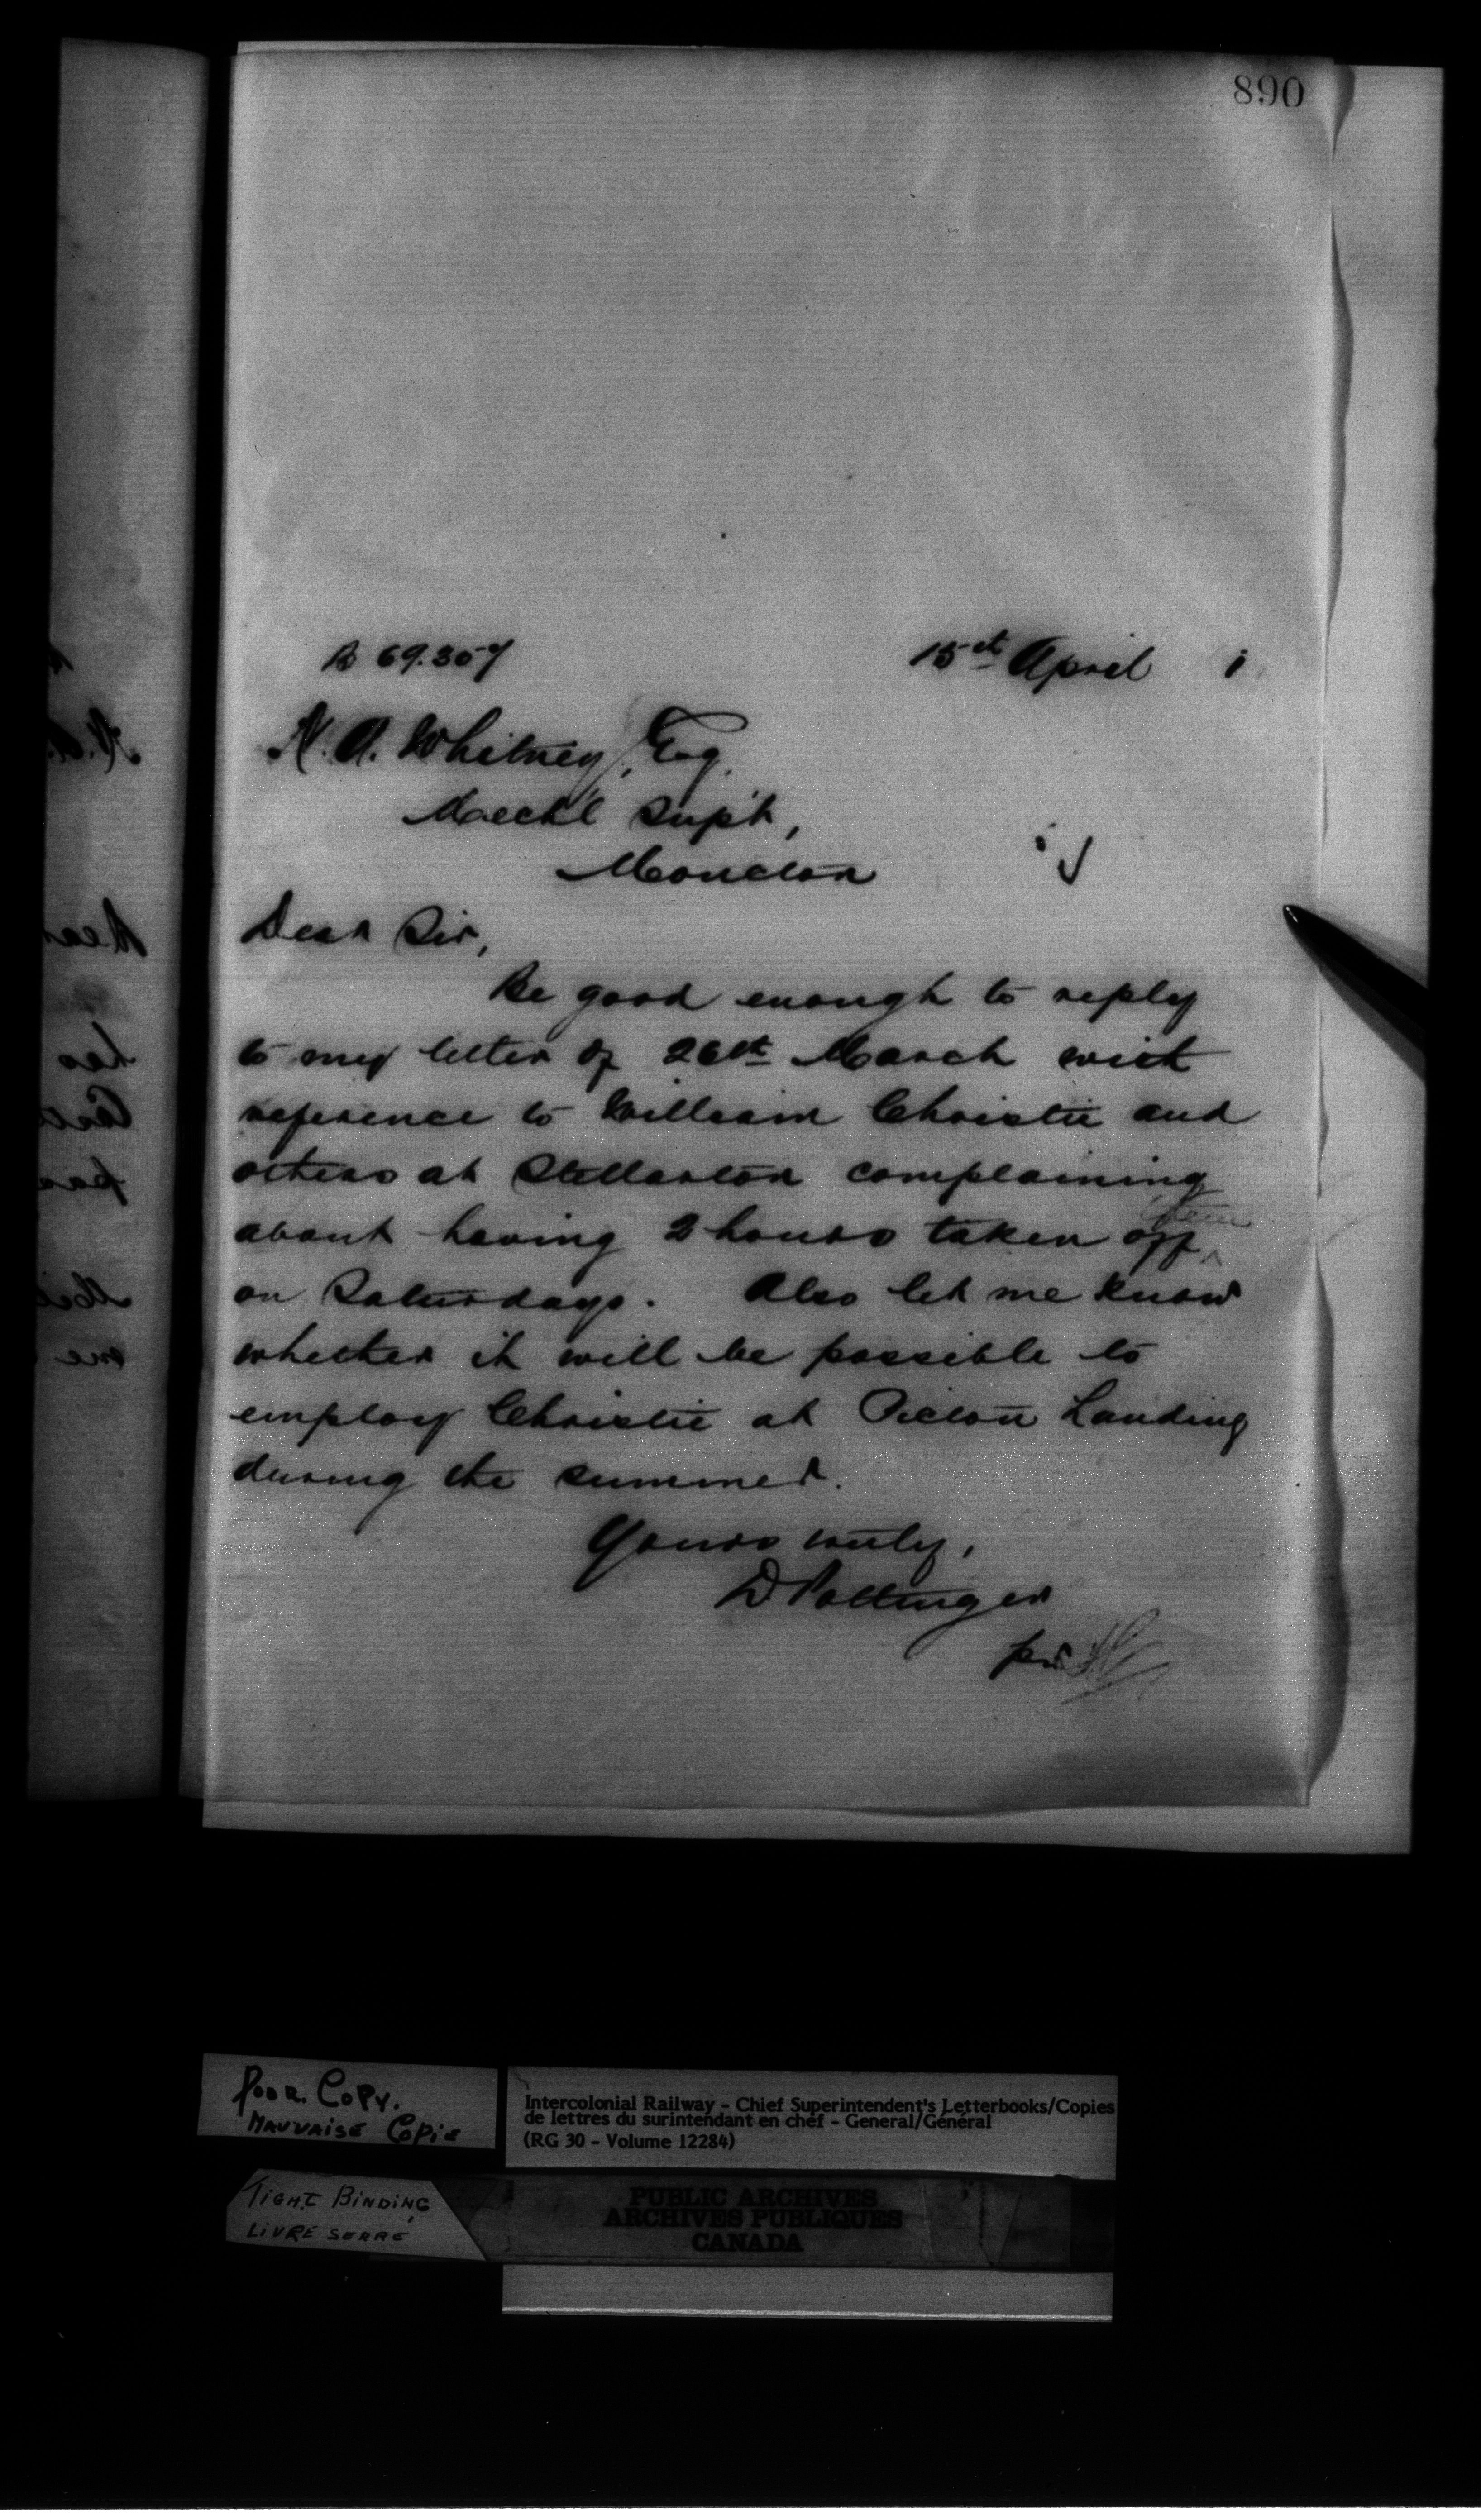 890
R 69.357
15th April 1
N. A. Whitney, Esq.
Mechl Supt,
Moncton
Dear Sir,
Be good enough to reply
to my letter of 26th March with
reference to William Christie and
others at Stellarton complaining
about having 2 hours taken off
on Saturdays. Also let me know
whether it will be possible to
employ Christie at Pictou Landing
during the summer.
Yours truly,
D Pottinger
per
POOR COPY.
MAUVAISE COPIE
Intercolonial Railway - Chief Superintendent's Letterbooks/Copies
de lettres du surintendant en chef - General/Général
(RG 30 - Volume 12284)
TIGHT BINDING
LIVRE SERRÉ
PUBLIC ARCHIVES
ARCHIVES PUBLIQUES
CANADA